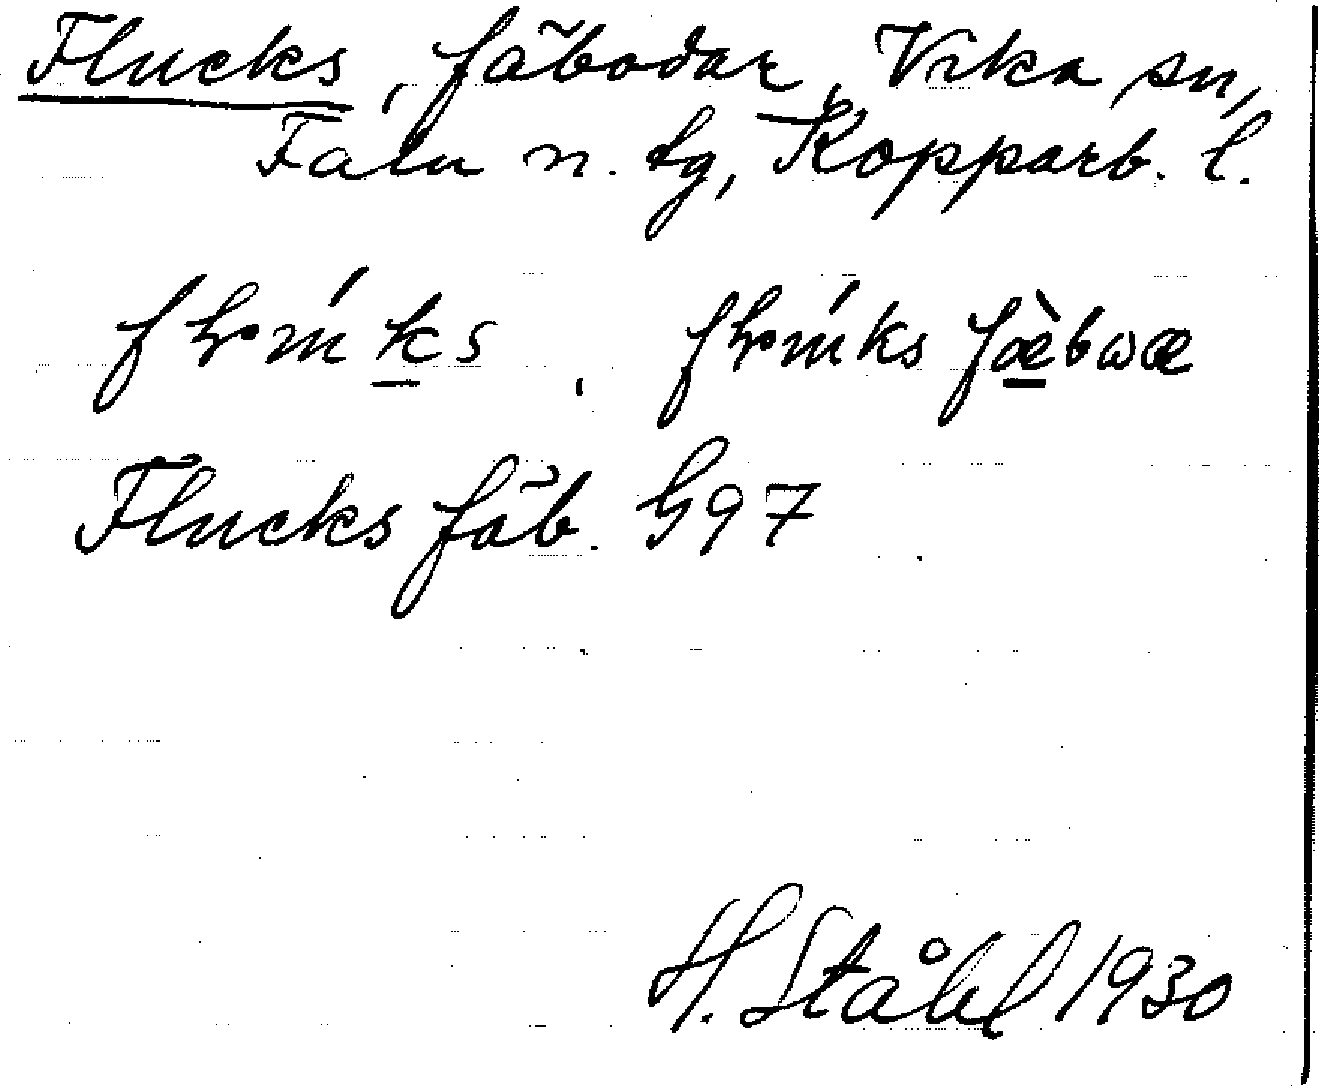 Flucks, fäbodar, Vika sn,
Falu n. tg, Kopparb. l.
Flucks fäb. G97
H. Ståhl 1930